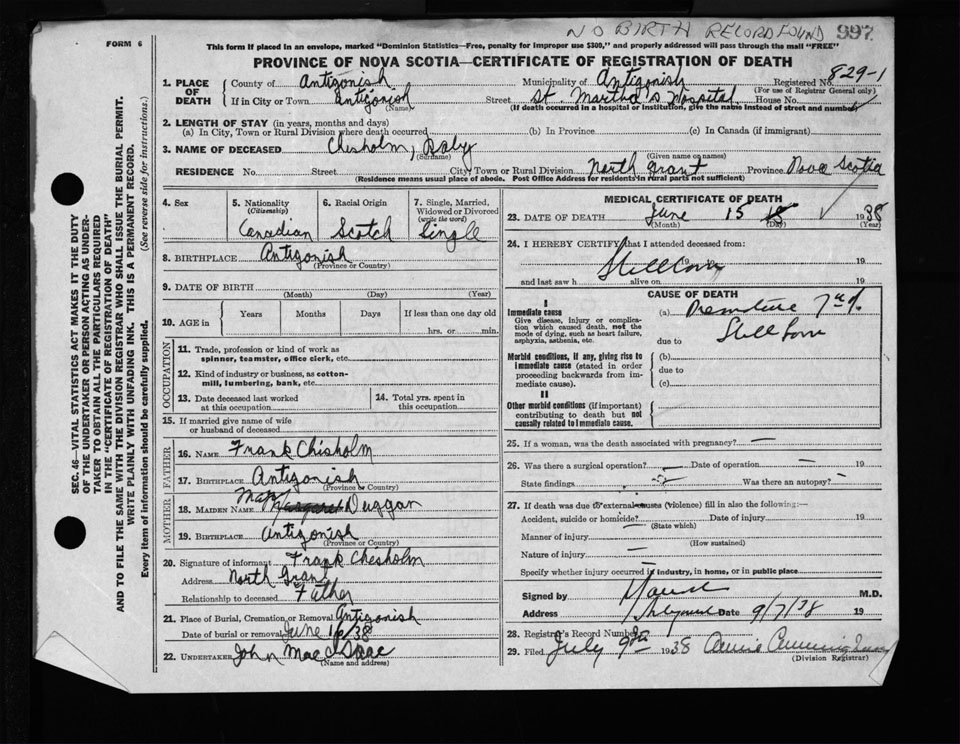 NO BIRTH RECORD FOUND 997
FORM 6
This form if placed in an envelope, marked "Dominion Statistics—Free, penalty for improper use $300," and properly addressed will pass through the mail "FREE"
PROVINCE OF NOVA SCOTIA—CERTIFICATE OF REGISTRATION OF DEATH
SEC. 46—VITAL STATISTICS ACT MAKES IT THE DUTY
OF THE UNDERTAKER OR PERSON ACTING AS UNDER-
TAKER TO OBTAIN ALL THE PARTICULARS REQUIRED
IN THE "CERTIFICATE OF REGISTRATION OF DEATH"
AND TO FILE THE SAME WITH THE DIVISION REGISTRAR WHO SHALL ISSUE THE BURIAL PERMIT.
WRITE PLAINLY WITH UNFADING INK. THIS IS A PERMANENT RECORD.
Every item of information should be carefully supplied. (See reverse side for instructions.)
1. PLACE OF DEATH
County of Antigonish Municipality of Antigonish Registered No. 829-1
(For use of Registrar General only)
If in City or Town Antigonish Street St. Martha's Hospital House No.
(Name) (If death occurred in a hospital or institution, give the name instead of street and number)
2. LENGTH OF STAY (in years, months and days)
(a) In City, Town or Rural Division where death occurred (b) In Province (c) In Canada (if immigrant)
3. NAME OF DECEASED Chisholm, Baby
(Surname) (Given name or names)
RESIDENCE No. Street City, Town or Rural Division North Grant Province Nova Scotia
(Residence means usual place of abode. Post Office Address for residents in rural parts not sufficient)
4. Sex
5. Nationality (Citizenship) Canadian
6. Racial Origin Scotch
7. Single, Married, Widowed or Divorced (write the word) Single
8. BIRTHPLACE Antigonish
(Province or Country)
9. DATE OF BIRTH
(Month) (Day) (Year)
10. AGE in Years Months Days If less than one day old
hrs. or min.
OCCUPATION
11. Trade, profession or kind of work as
spinner, teamster, office clerk, etc.
12. Kind of industry or business, as cotton-
mill, lumbering, bank, etc.
13. Date deceased last worked
at this occupation
14. Total yrs. spent in
this occupation
15. If married give name of wife
or husband of deceased
FATHER
16. NAME Frank Chisholm
17. BIRTHPLACE Antigonish
(Province or Country)
MOTHER
18. MAIDEN NAME Mary Margaret Duggan
19. BIRTHPLACE Antigonish
(Province or Country)
20. Signature of informant Frank Chesholm
Address North Grant
Relationship to deceased Father
21. Place of Burial, Cremation or Removal Antigonish
Date of burial or removal June 16/38
22. UNDERTAKER John MacIsaac
(Name and address)
MEDICAL CERTIFICATE OF DEATH
23. DATE OF DEATH June 15 1938
(Month) (Day) (Year)
24. I HEREBY CERTIFY that I attended deceased from:
Stillborn 19 19
and last saw h alive on 19
CAUSE OF DEATH
I
Immediate cause
Give disease, injury or complica-
tion which caused death, not the
mode of dying, such as heart failure,
asphyxia, asthenia, etc.
(a) Premature 7
due to Stillborn
Morbid conditions, if any, giving rise to
immediate cause (stated in order
proceeding backwards from im-
mediate cause).
(b)
due to
(c)
II
Other morbid conditions (if important)
contributing to death but not
causally related to immediate cause.
25. If a woman, was the death associated with pregnancy? —
26. Was there a surgical operation? — Date of operation — 19
State findings Was there an autopsy? —
27. If death was due to external causes (violence) fill in also the following:—
Accident, suicide or homicide? Date of injury 19
(State which)
Manner of injury
(How sustained)
Nature of injury —
Specify whether injury occurred in industry, in home, or in public place
Signed by M.D.
Address Date 9/7/38 19
28. Registrar's Record Number
29. Filed July 9th 1938 Annie Cunningham
(Division Registrar)